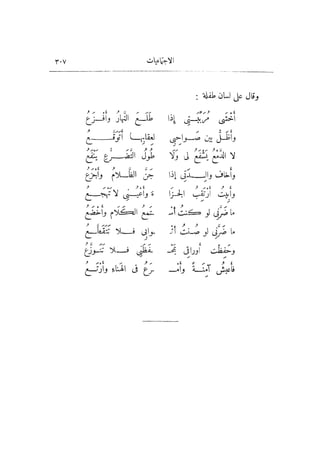 الاجتماعيات ٣٠٧
وقال على لسان طفلة :
أخشى مُرَبِّيَتى إذا طَلَع النَّهارُ وأَفْزَعُ
وأَظَلُّ بين صواحبى لعِقابِها أَتَوَقَّعُ
لا الدَّمْعُ يَشْفَعُ لى وَلا طُولُ التَّضَرُّعِ يَنْفَعُ
وأخاف والدتى إذا جَنَّ الظَّلامُ وأَجْزَعُ
وأَبِيتُ أَرْتَقِبُ الجزا ءَ وأَعْيُنى لا تَهْجَعُ
ما ضَرَّنى لو كنتُ أسْـ ـتَمِعُ الكلامَ وأَخْضَعُ
ما ضَرَّنى لو صُنْتُ أثْـ ـوابى فلا تَتَقَطَّعُ
وحَفِظْتُ أوراقى بَمحْـ ـفَظَتى فلا تَتَوزَّعُ
فأعيشُ آمِنَةً وأَمْـ ـرَعُ فى الهَناءِ وأَرْتَعُ